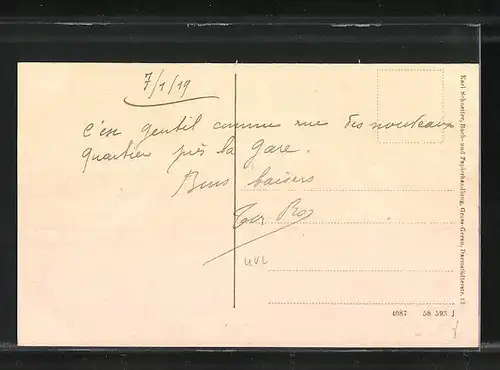 7/1/19
c'est gentil comme rue des nouveaux
quartier près la gare.
Bons baisers
uvl
Karl Schneller, Buch- und Papierhandlung, Gross-Gerau, Darmstädterstr. 13
4087 58 593 J